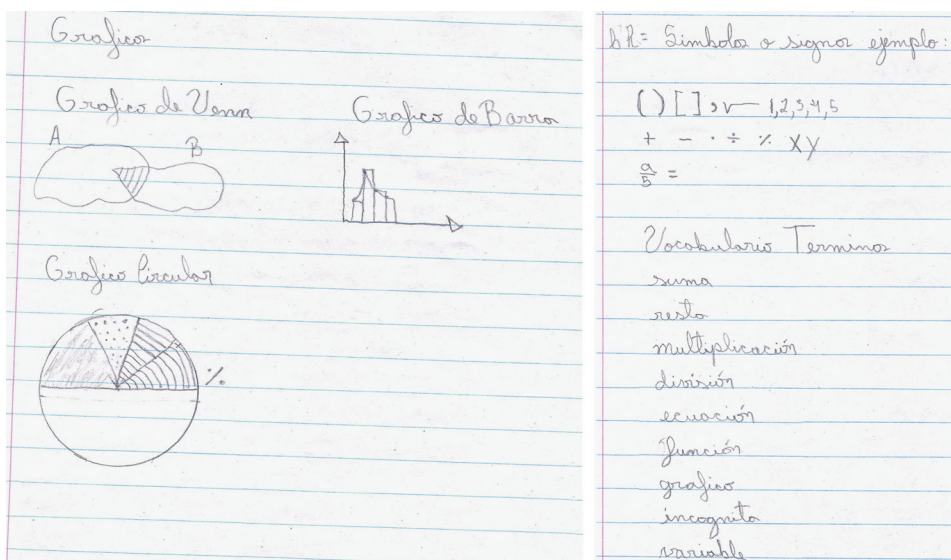 Grafico
Grafico de Venn
Grafico de Barra
A
B
Grafico Circular
%
bR= Simbolos o signos ejemplo:
( ) [ ] , √ 1,2,3,4,5
+ - · ÷ % X Y
a/5 =
Vocabulario Terminos
suma
resta
multiplicación
división
ecuación
función
grafico
incognita
variable